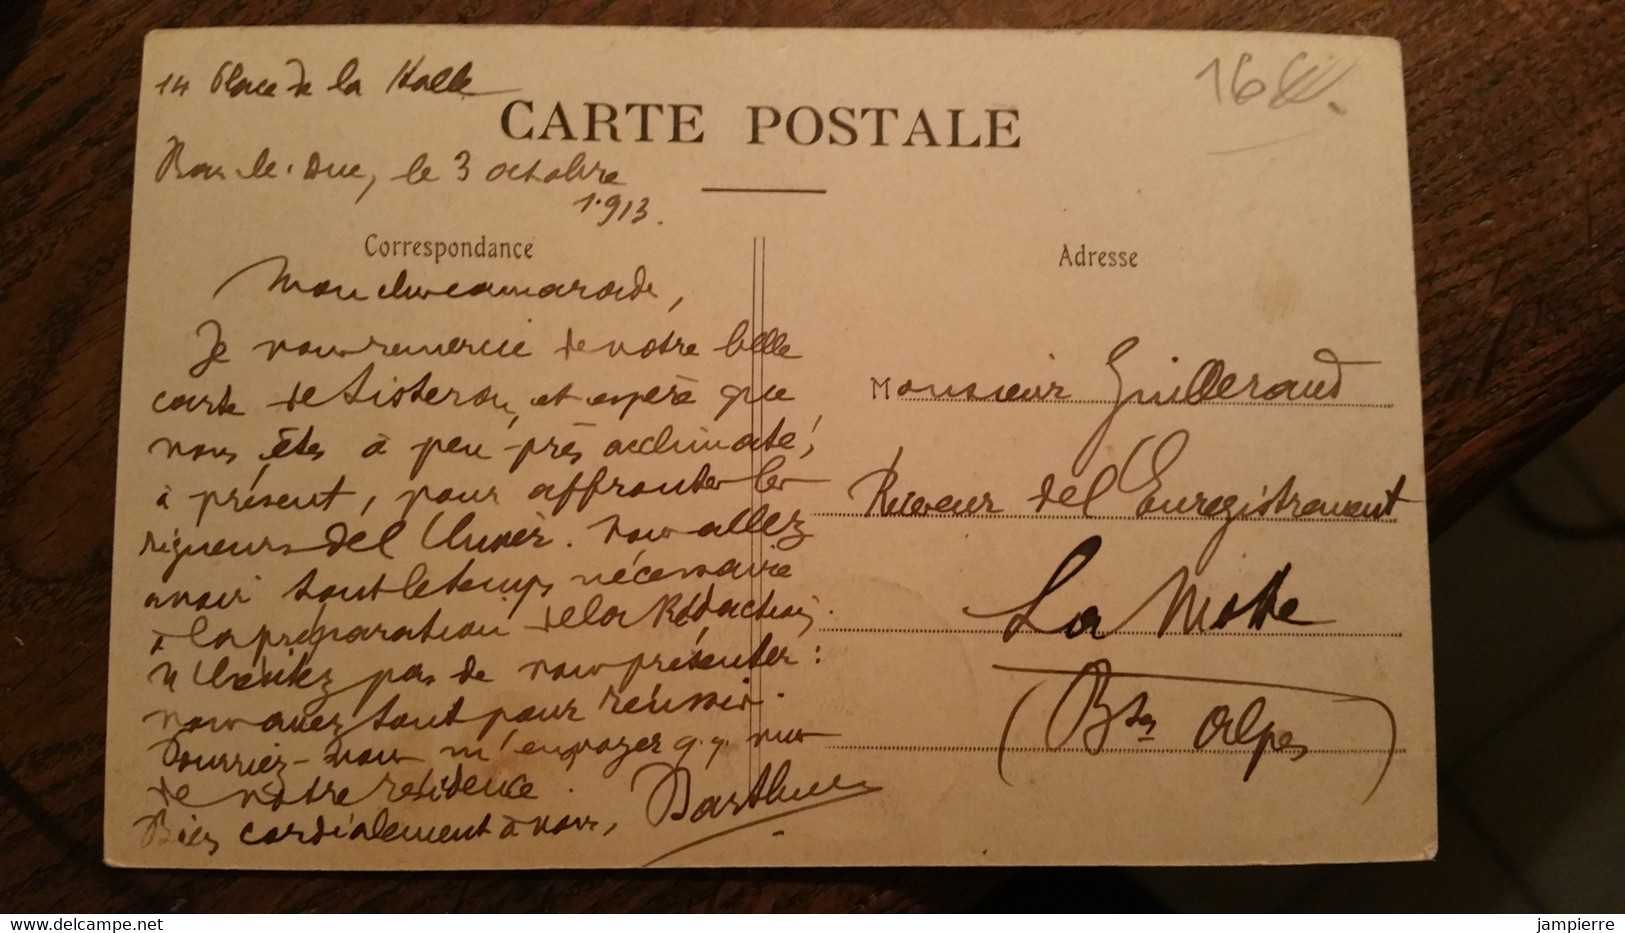 14 Place de la Halle
16
CARTE POSTALE
Bar-le-Duc, le 3 octobre
1913.
Correspondance
Adresse
Mon cher camarade,
Je vous remercie de votre belle
carte de Sisteron, et espère que
vous êtes à peu près acclimaté,
à présent, pour affronter les
rigueurs de l'hiver. Vous allez
avoir tout le temps nécessaire
à la préparation de la Rédaction.
N'hésitez pas de vous présenter :
vous avez tout pour réussir.
Pourriez-vous m'envoyer q.q. vues
de votre résidence.
Bien cordialement à vous,
Monsieur Guilleraud
Receveur de l'Enregistrement
La Motte
(Bses Alpes)
jampierre